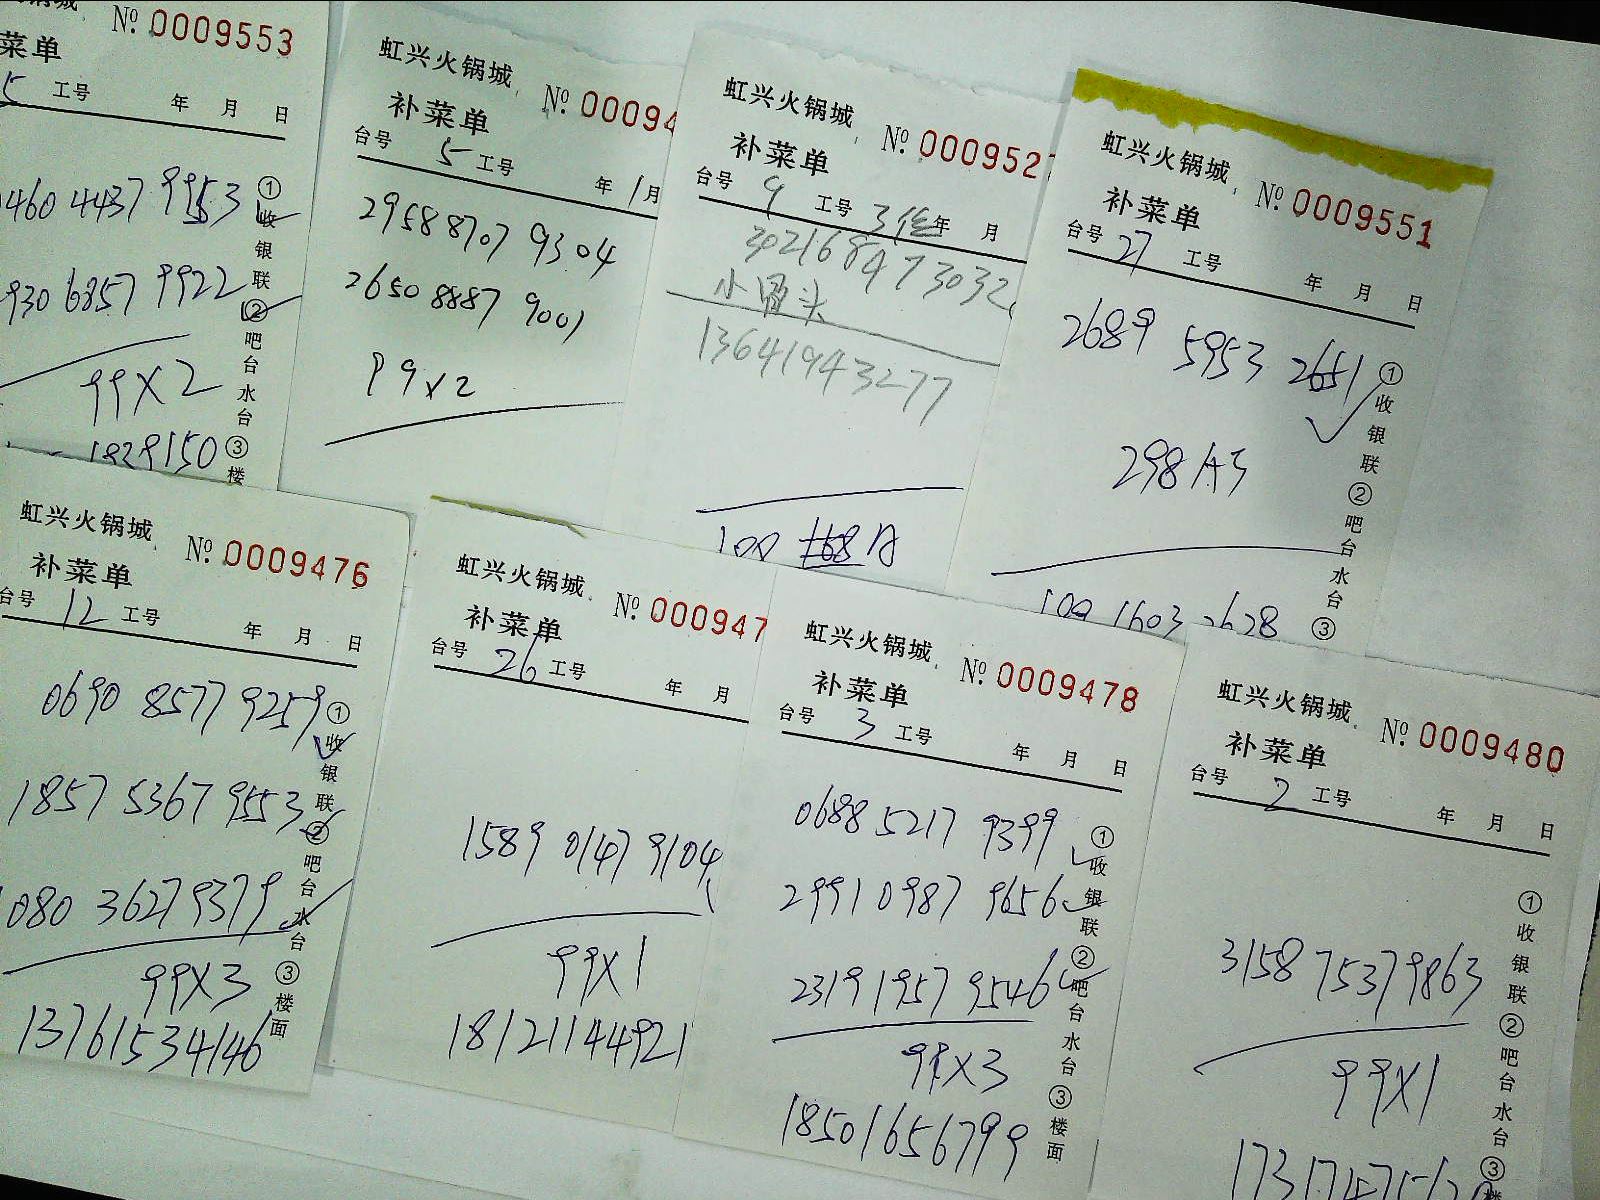 № 0009553
菜单
5 工号 年 月 日
460 4437 9953
930 6857 9922
99X2
1829150
①收银联②吧台水台③楼
虹兴火锅城
№ 00094
补菜单
台号 5 工号 年 1月
2958 8707 9304
2650 8887 9001
99X2
虹兴火锅城
№ 0009527
补菜单
台号 9 工号 年 月
302168473032
小骨头
13641943277
100
虹兴火锅城
№ 0009551
补菜单
台号 27 工号 年 月 日
2689 5953 2651
100 1603 2628
①收银联②吧台水台③
虹兴火锅城
№ 0009476
补菜单
台号 12 工号 年 月 日
0690 8577 9259
1857 5367 9553
080 3627 9379
99X3
13761534146
①收银联②吧台水台③楼面
虹兴火锅城
№ 000947
补菜单
台号 26 工号 年 月
1589 0147 9104
99X1
18121144921
虹兴火锅城
№ 0009478
补菜单
台号 3 工号 年 月 日
0688 5217 9399
2991 0987 9656
2319 1957 9546
99X3
18501656799
①收银联②吧台水台③楼面
虹兴火锅城
№ 0009480
补菜单
台号 2 工号 年 月 日
3158 7537 9863
99X1
①收银联②吧台水台③楼